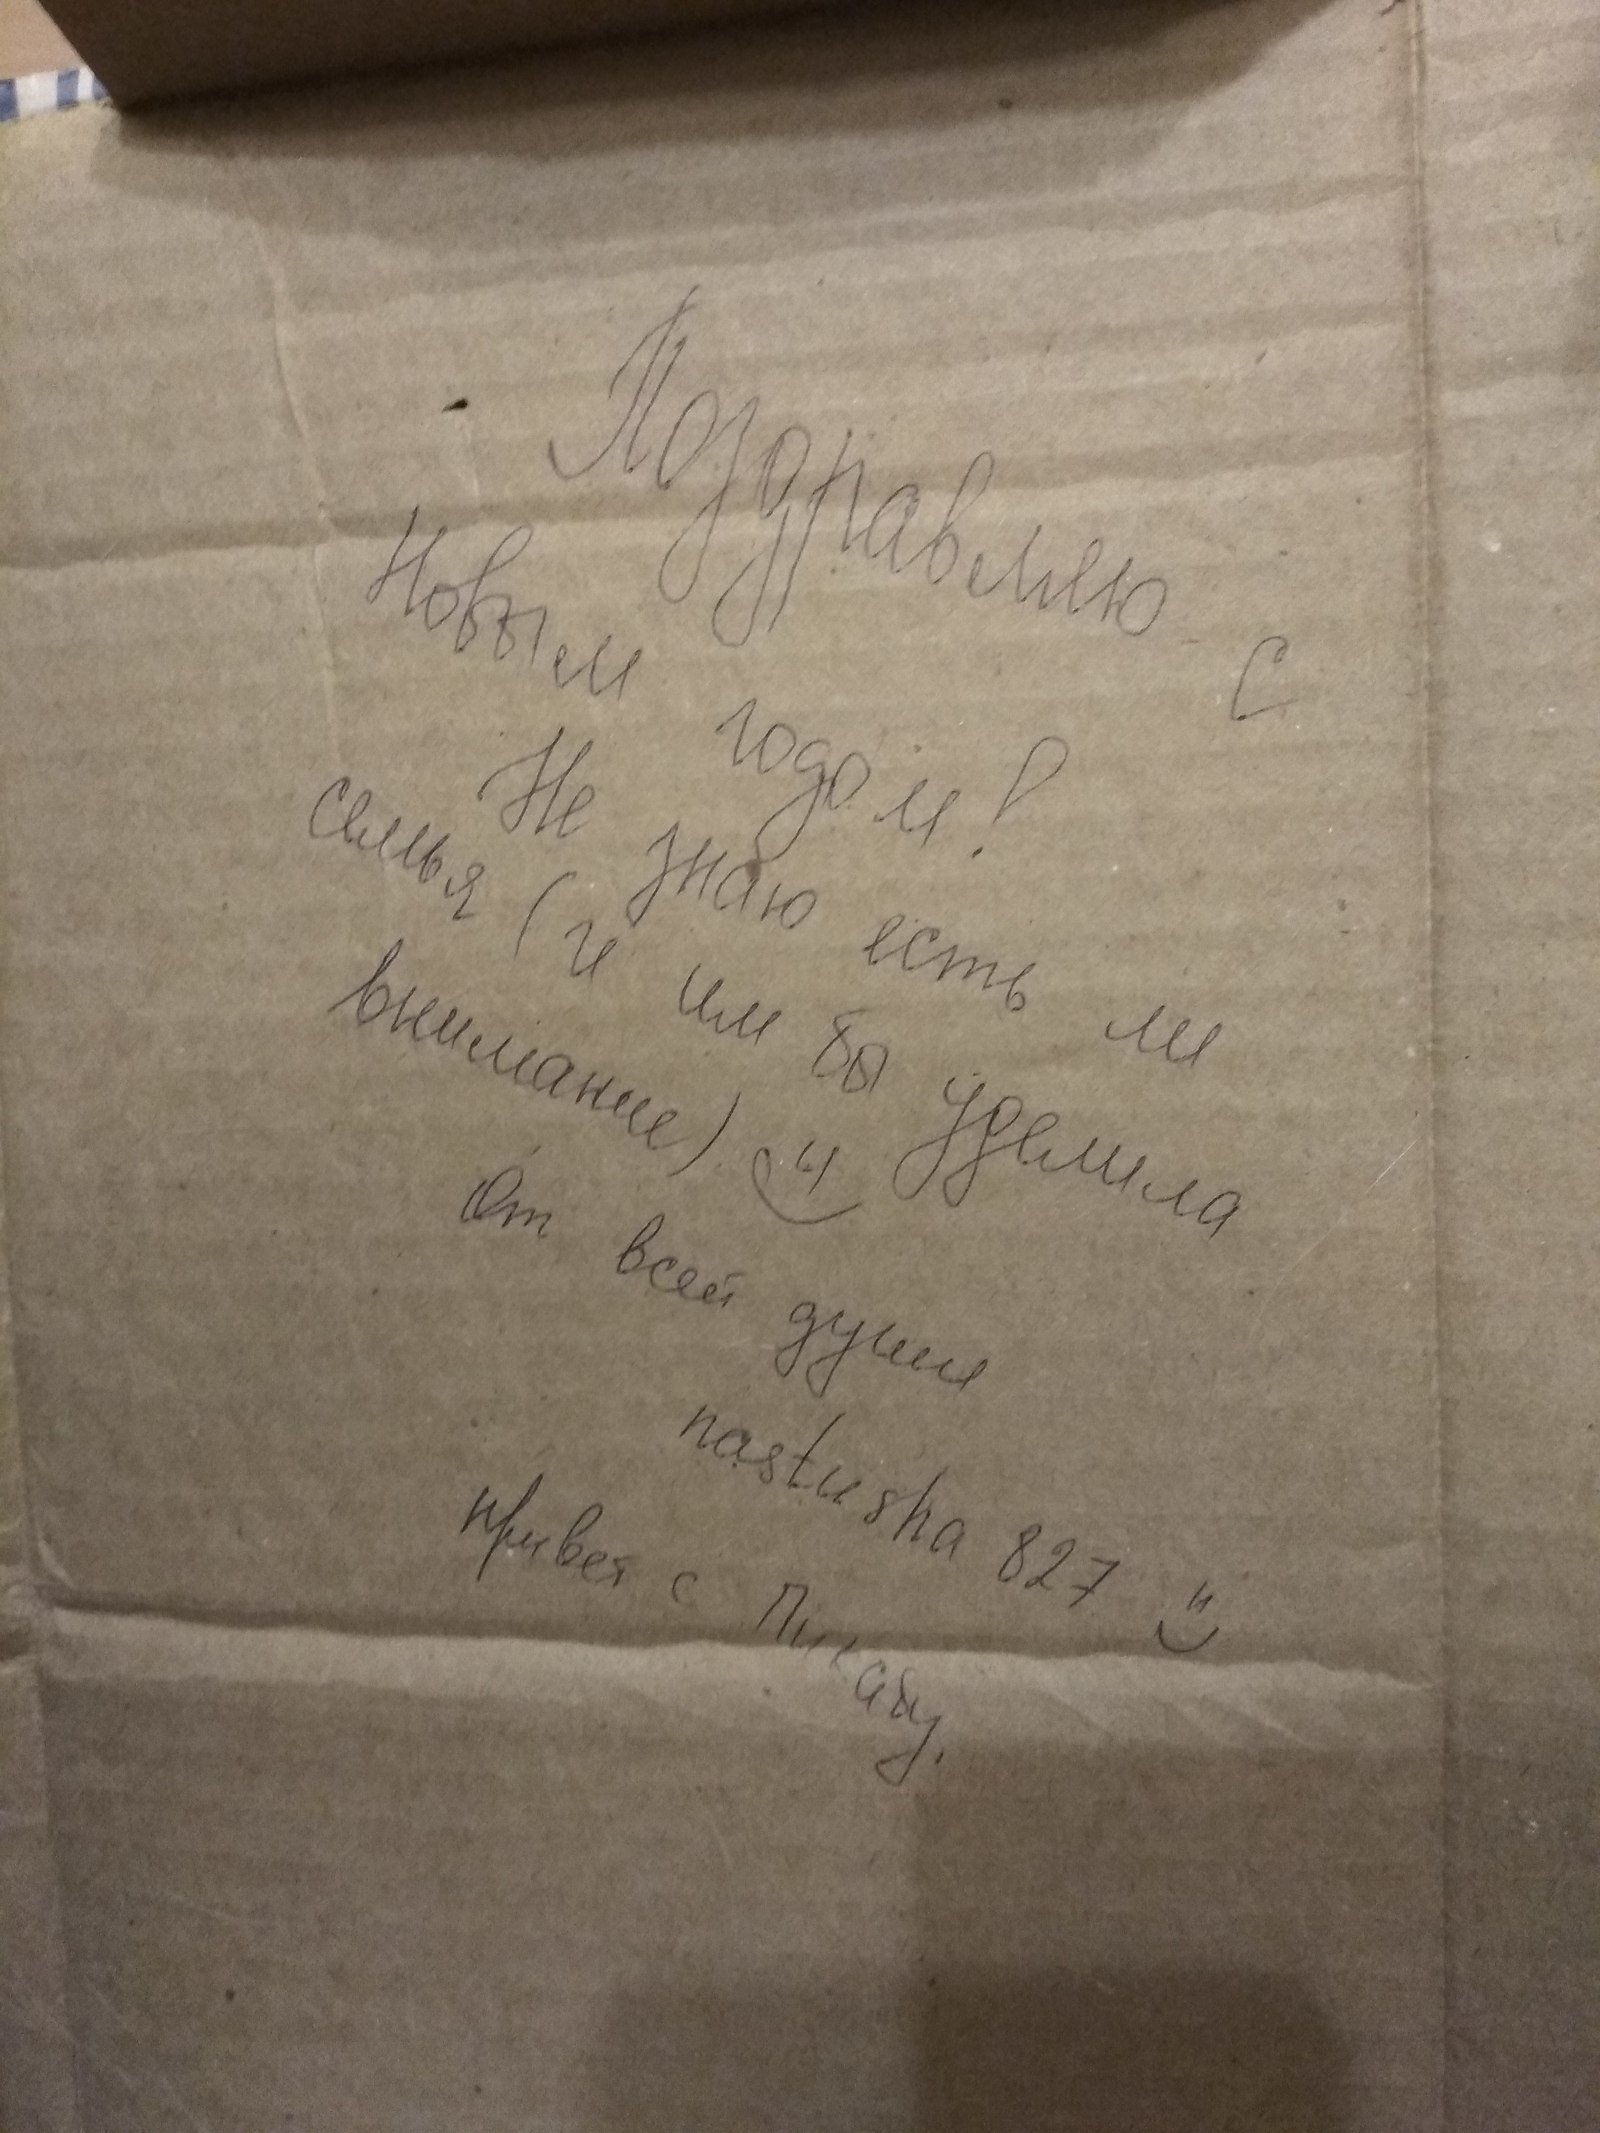 Поздравляю с
Новым годом!
Не знаю есть ли
семья (и им бы уделила
внимание)
От всей души
nastusha 827
привет с Пикабу.